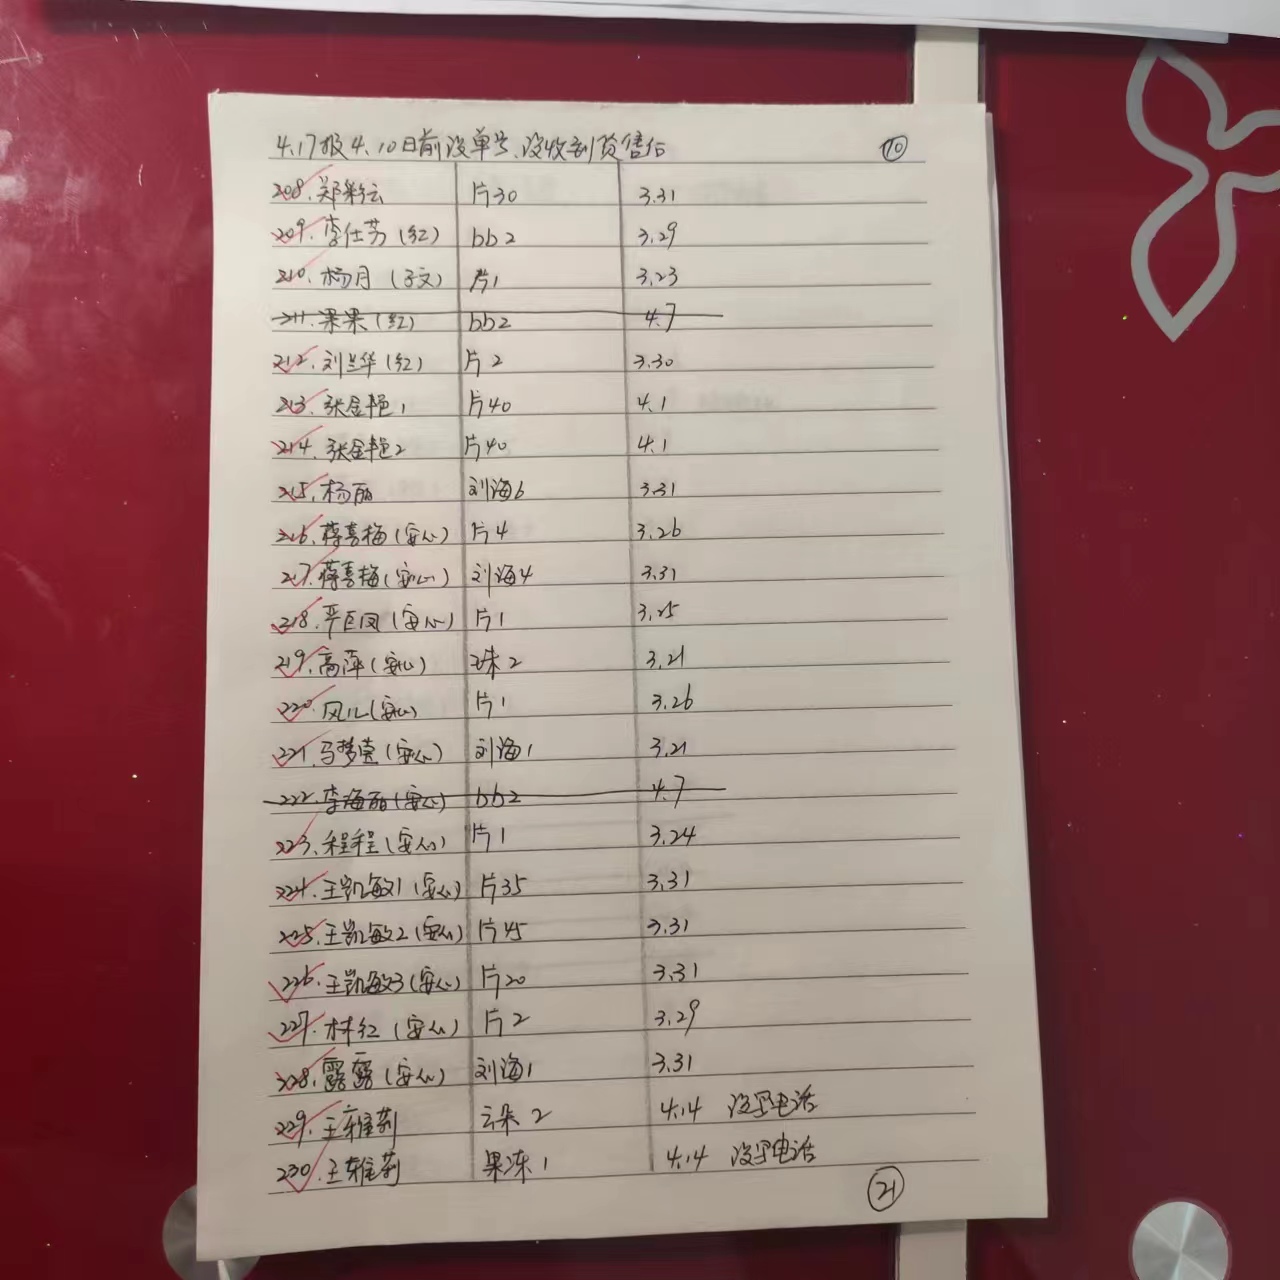 4.17报4.10日前没单号、没收到货售后 ⑩
208.郑彩云 片30 3.31
209.李仕芳(红) bb2 3.29
210.杨月(子文) 片1 3.23
211.果果(红) bb2 4.7
212.刘兰华(红) 片2 3.30
213.张金艳1 片40 4.1
214.张金艳2 片40 4.1
215.杨丽 刘海6 3.31
216.蒋喜梅(安心) 片4 3.26
217.蒋喜梅(安心) 刘海4 3.31
218.严巨凤(安心) 片1 3.25
219.高萍(安心) 珠2 3.21
220.凤儿(安心) 片1 3.26
221.马梦莹(安心) 刘海1 3.21
222.李海丽(安心) bb2 4.7
223.程程(安心) 片1 3.24
224.王凯敏1(安心) 片35 3.31
225.王凯敏2(安心) 片45 3.31
226.王凯敏3(安心) 片20 3.31
227.林红(安心) 片2 3.29
228.露露(安心) 刘海1 3.31
229.王雅莉 云朵2 4.14 没写电话
230.王雅莉 果冻1 4.14 没写电话
㉑